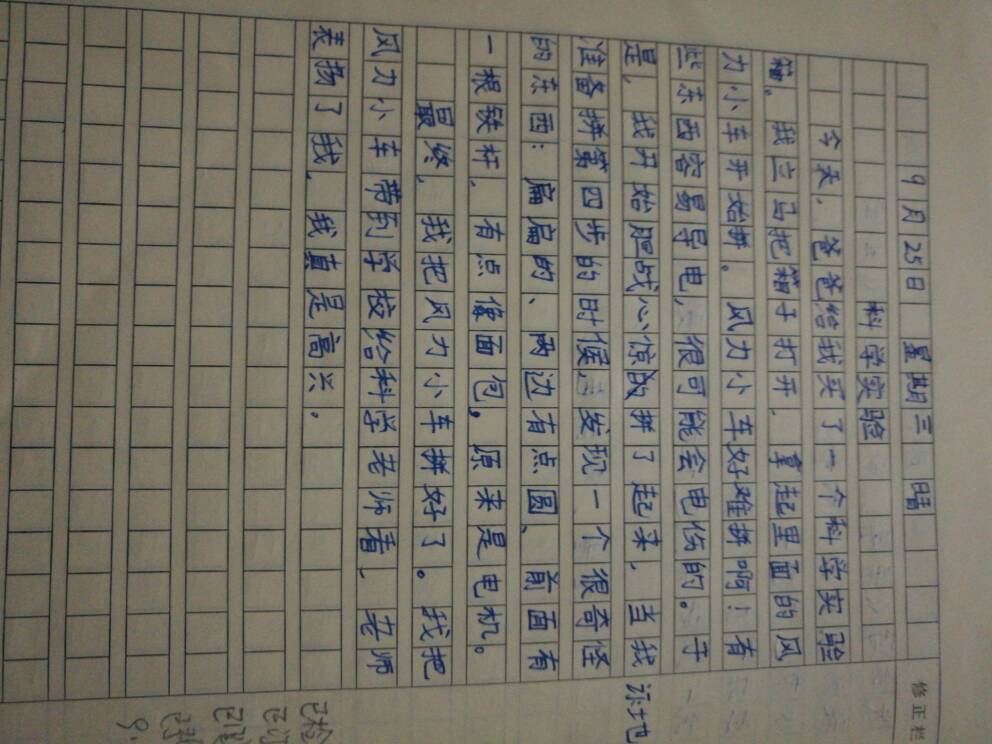 9月25日 星期三 晴
科学实验
今天，爸爸给我买了一个科学实验
箱。我立马把箱子打开，拿起里面的风
力小车开始拼。风力小车好难拼啊！有
些东西容易导电，很可能会电伤的。于
是，我开始胆战心惊的拼了起来，当我
准备拼第四步的时候，发现一个很奇怪
的东西：扁扁的、两边有点圆、前面有
一根铁杆，有点像面包。原来是电机。
最终，我把风力小车拼好了。我把
风力小车带到学校给科学老师看，老师
表扬了我，我真是高兴。
修正栏
地